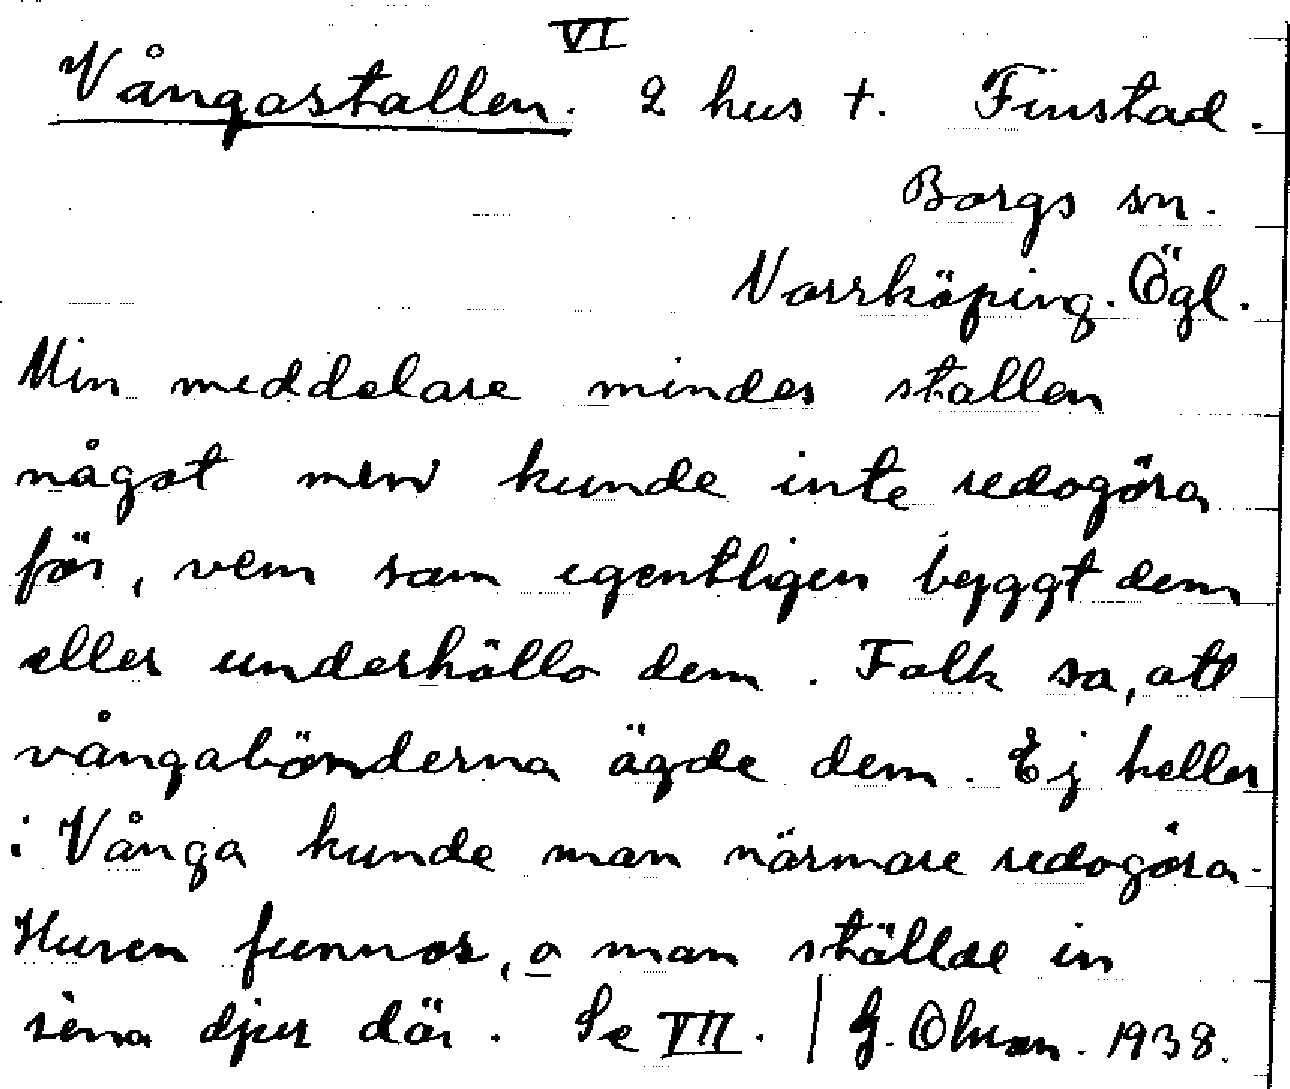 VI
Vångastallen. 2 hus †. Finstad.
Borgs sn.
Norrköping. Ögl.
Min meddelare mindes stallen
något men kunde inte redogöra
för, vem som egentligen byggt dem
eller underhållo dem. Folk sa, att
vångabönderna ägde dem. Ej heller
i Vånga kunde man närmare redogöra.
Husen funnos, o man ställde in
sina djur där. Se VII. | G. Olsson. 1938.